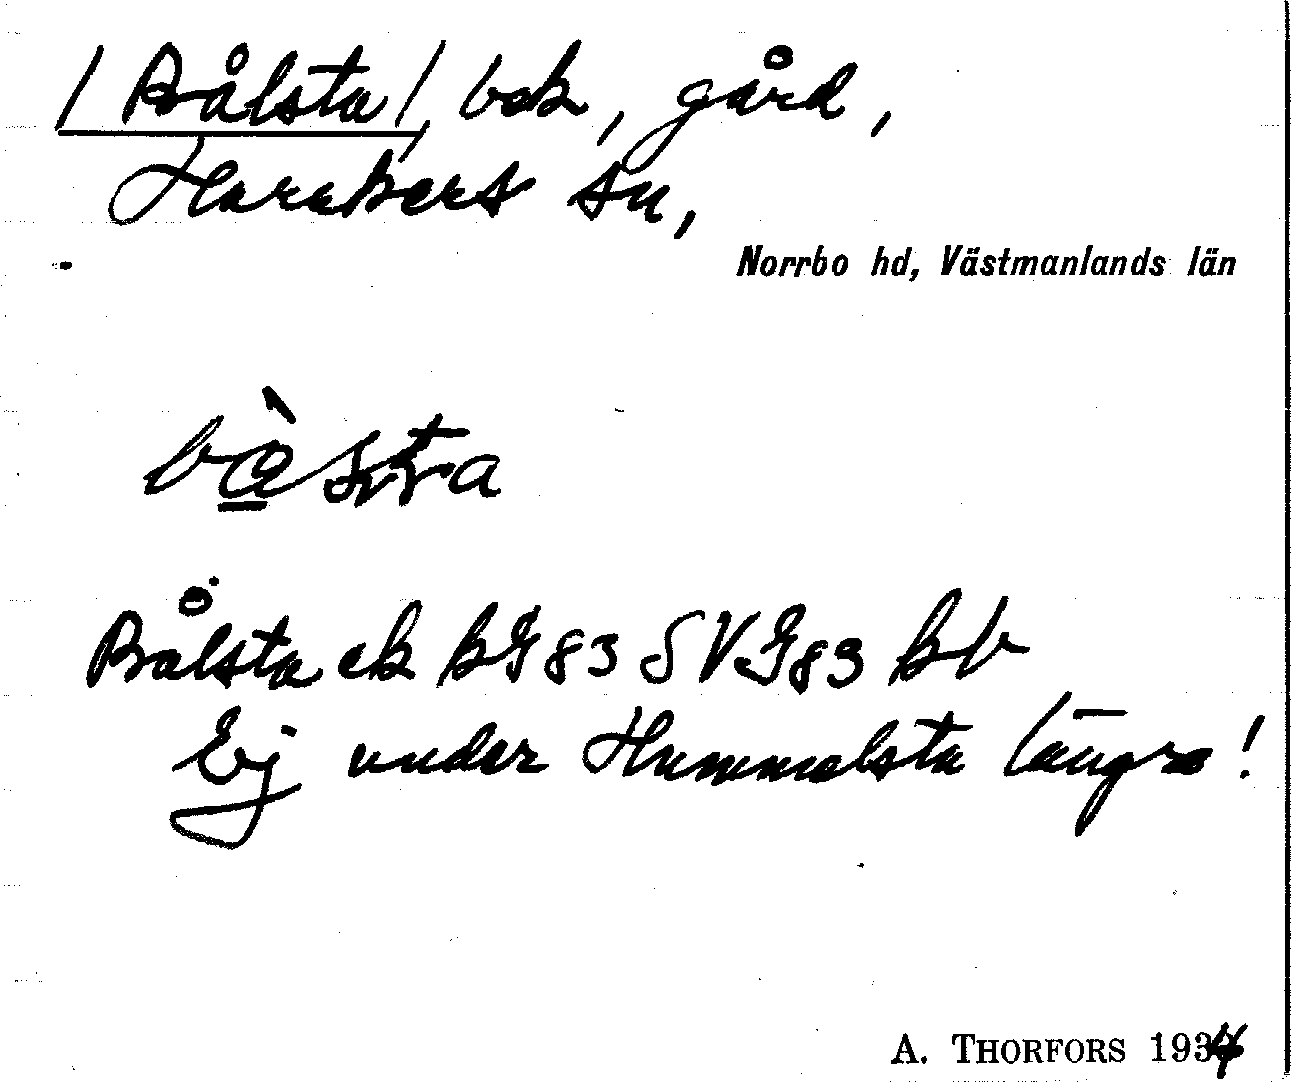 / Bålsta /, bok, gård,
Haraker sn,
Norrbo hd, Västmanlands län
Bålsta ek BG83 SVG83 Bb
Ej under Hummelsta längre!
A. THORFORS 1934